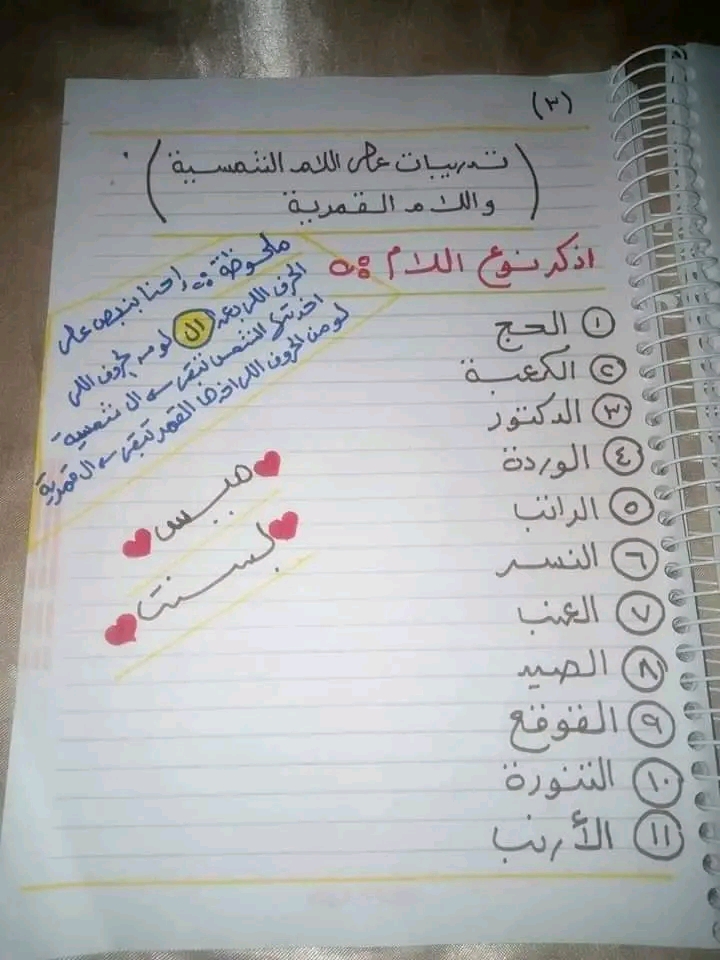 (٣)
( تدريبات على اللام الشمسية
واللام القمرية )
اذكر نوع اللام :-
ملحوظة :- احنا بنبص على
الحرف اللي بعد ال لو من الحروف اللي
اخدتها الشمس تبقى ال شمسية
لو من الحروف اللي اخدها القمر تبقى ال قمرية
١ الحج
٢ الكعبة
٣ الدكتور
٤ الوردة
٥ الراتب
٦ النسر
٧ العنب
٨ الصيد
٩ القوقع
١٠ التنورة
١١ الأرنب
ميس
بسنت